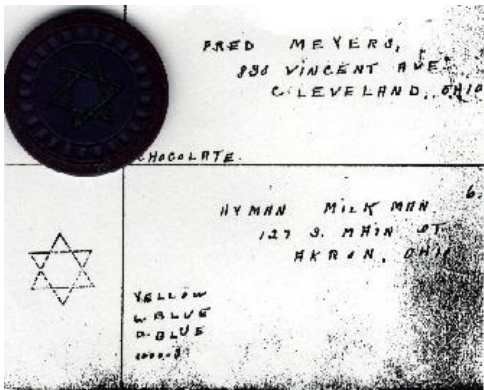 FRED MEYERS,
838 VINCENT AVE.
CLEVELAND, OHIO
CHOCOLATE.
6.
HYMAN MILKMAN
127 S. MAIN ST
AKRON, OHIO
YELLOW
W BLUE
D BLUE